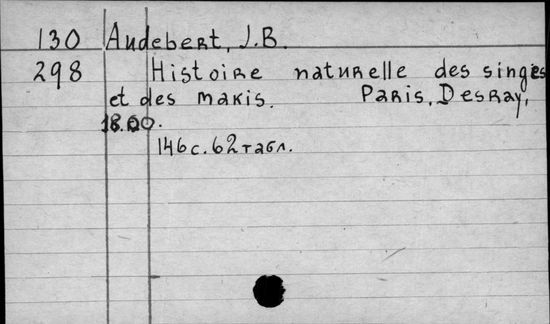 130 Audebert, J.B.
298 Histoire naturelle des singes
et des makis. Paris, Desray,
1800.
146 с. 62 табл.